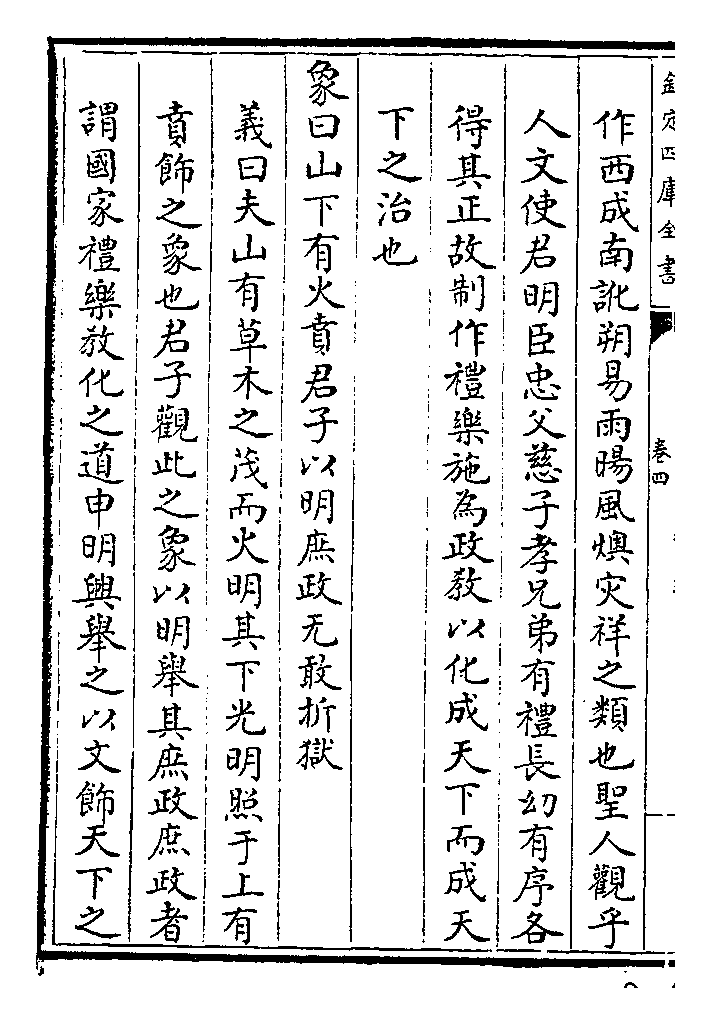 欽定四庫全書
卷四
作西成南訛朔易雨暘風燠灾祥之類也聖人觀乎
人文使君明臣忠父慈子孝兄弟有禮長幼有序各
得其正故制作禮樂施為政教以化成天下而成天
下之治也
象曰山下有火賁君子以明庶政无敢折獄
義曰夫山有草木之茂而火明其下光明照于上有
賁飾之象也君子觀此之象以明舉其庶政庶政者
謂國家禮樂教化之道申明興舉之以文飾天下之